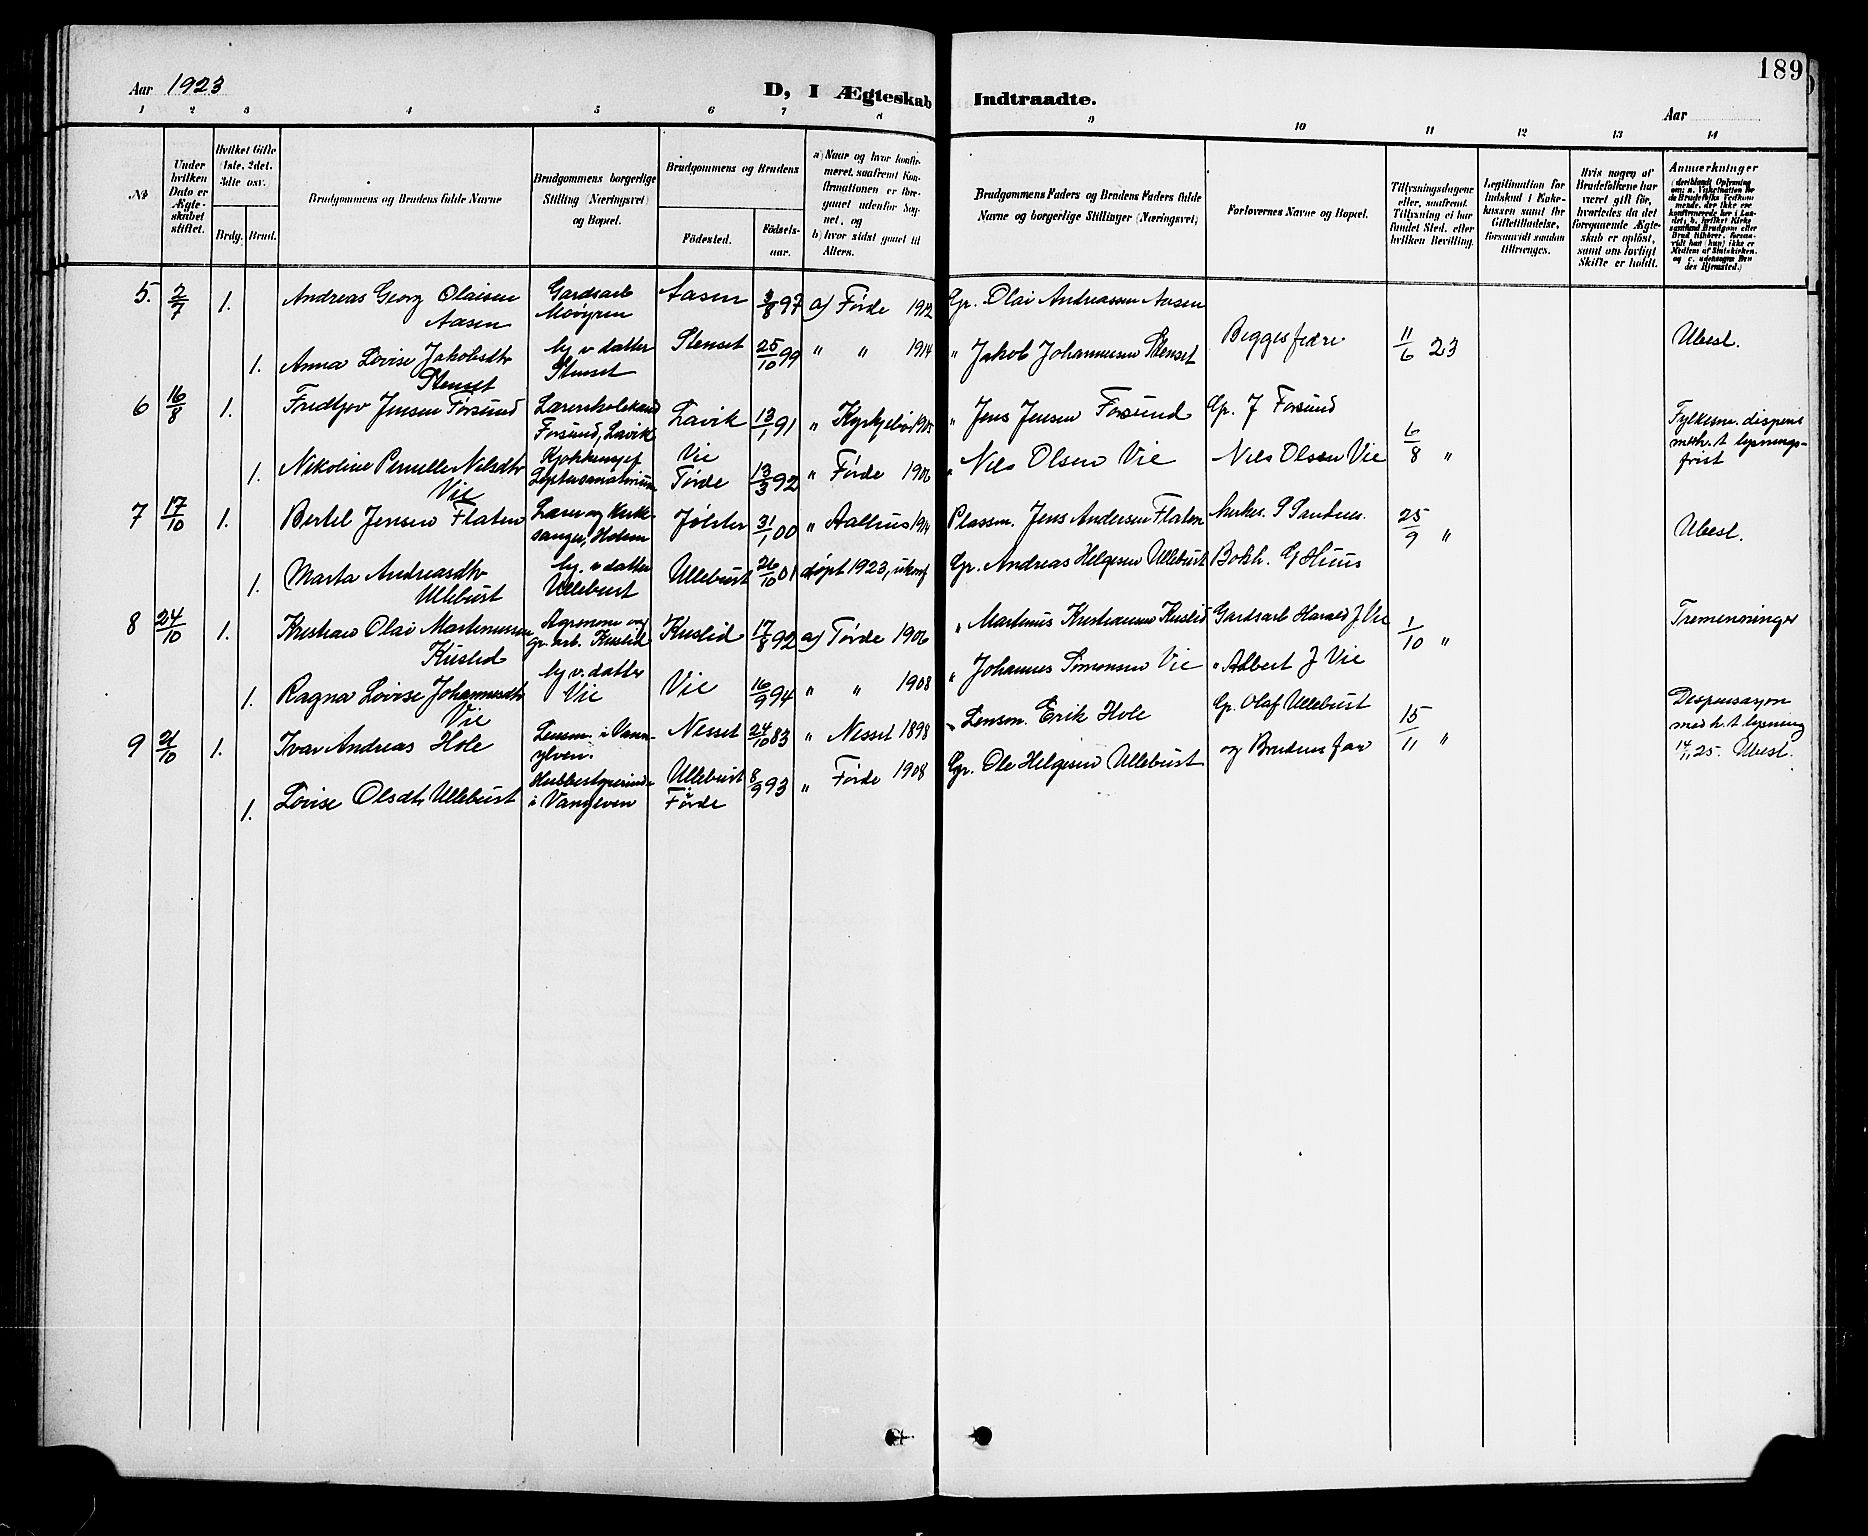 189
Aar 1923
D, I Ægteskab Indtraadte.
Aar
1 2 3 4 5 6 7 8 9 10 11 12 13 14
№
Under hvilken Dato er Ægteskabet stiftet.
Hvilket Gifte (1ste, 2det, 3die osv.
Brdg. Brud.
Brudgommens og Brudens fulde Navne
Brudgommens borgerlige Stilling (Næringsvei) og Bopæl.
Brudgommens og Brudens
Födested.
Födselsaar.
a) Naar og hvor konfirmeret, saafremt Konfirmationen er foregaaet udenfor Sognet, og
b) hvor sidst gaaet til Alters.
Brudgommens Faders og Brudens Faders fulde Navne og borgerlige Stillinger (Næringsvei)
Forlovernes Navne og Bopæl.
Tillysningsdagene eller, saafremt Tillysning ei har fundet Sted, efter hvilken Bevilling.
Legitimation for Indskud i Enkekassen samt for Giftetilladelse, forsaavidt saadan tiltrænges.
Hvis nogen af Brudefolkene har været gift før, hvorledes da det foregaaende Ægteskab er opløst, samt om lovligt Skifte er holdt.
Anmærkninger
5. 2/7 1. Andreas Georg Olaisen Aasen Gardsarb Aasen 3/8 97 a) Førde 1912 Gr. Olai Andreassen Aasen
1. Anna Lovise Jakobsdtr Stenset hj v datter Stenset Stenset 25/10 99 " " 1914 " Jakob Johannesen Stenset Begges fedre 11/6 23 Ubesl.
6 16/8 1. Fredtjov Jensen Førsund Forsund, Lavik Lavik 13/1 91 " Kyrkjebø " Jens Jensen Forsund Gr. J Forsund 6/8 " Fylkesm. dispens m.h.t lysningsfrist
1. Nikoline Pernille Nilsdtr Vie Vie Førde 13/3 92 " Førde 1906 " Nils Olsen Vie Nils Olsen Vie
7 17/10 1. Bertel Jensen Flaten Lærer og kirkesanger, Holsen Jølster 31/1 00 " Aalhus 1914 Plassm. Jens Andersen Flaten 25/9 " Ubesl.
1. Marta Andreasdtr Ullebust hj. v datter Ullebust Ullebust 26/10 01 døpt 1923, ukonf Gr. Andreas Helgesen Ullebust Bokh. G Huus
8 24/10 1. Kristian Olai Martinussen Kuslid Agronom og gr. arb. Kuslid Kuslid 17/8 92 a) Førde 1906 " Martinus Kristiansen Kuslid Gardsarb Harald J. Vie 1/10 " Tremenninger
1. Ragna Lovise Johannesdtr Vie hj v. datter Vie Vie 16/9 94 " " 1908 " Johannes Simonsen Vie " Adbert J Vie
9 31/10 1. Ivar Andreas Hole Lensm. i Vannylven. Nesset 24/10 83 " Nesset 1898 " Lensm. Erik Hole Gr. Olaf Ullebust 15/11 " Dispensasjon med h. t lysning 14/1 25. Ubesl.
1. Lovise Olsdtr Ullebust Husbestyrerinde i Vanylven Ullebust i Førde 8/9 93 " Førde 1908 Gr. Ole Helgesen Ullebust og Brudens far